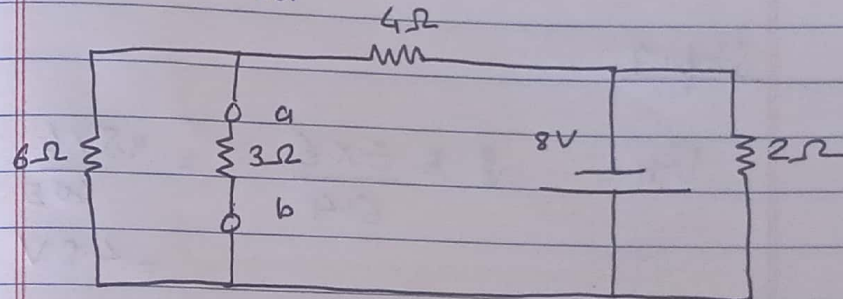 4Ω
a
6Ω 3Ω 8V 2Ω
b